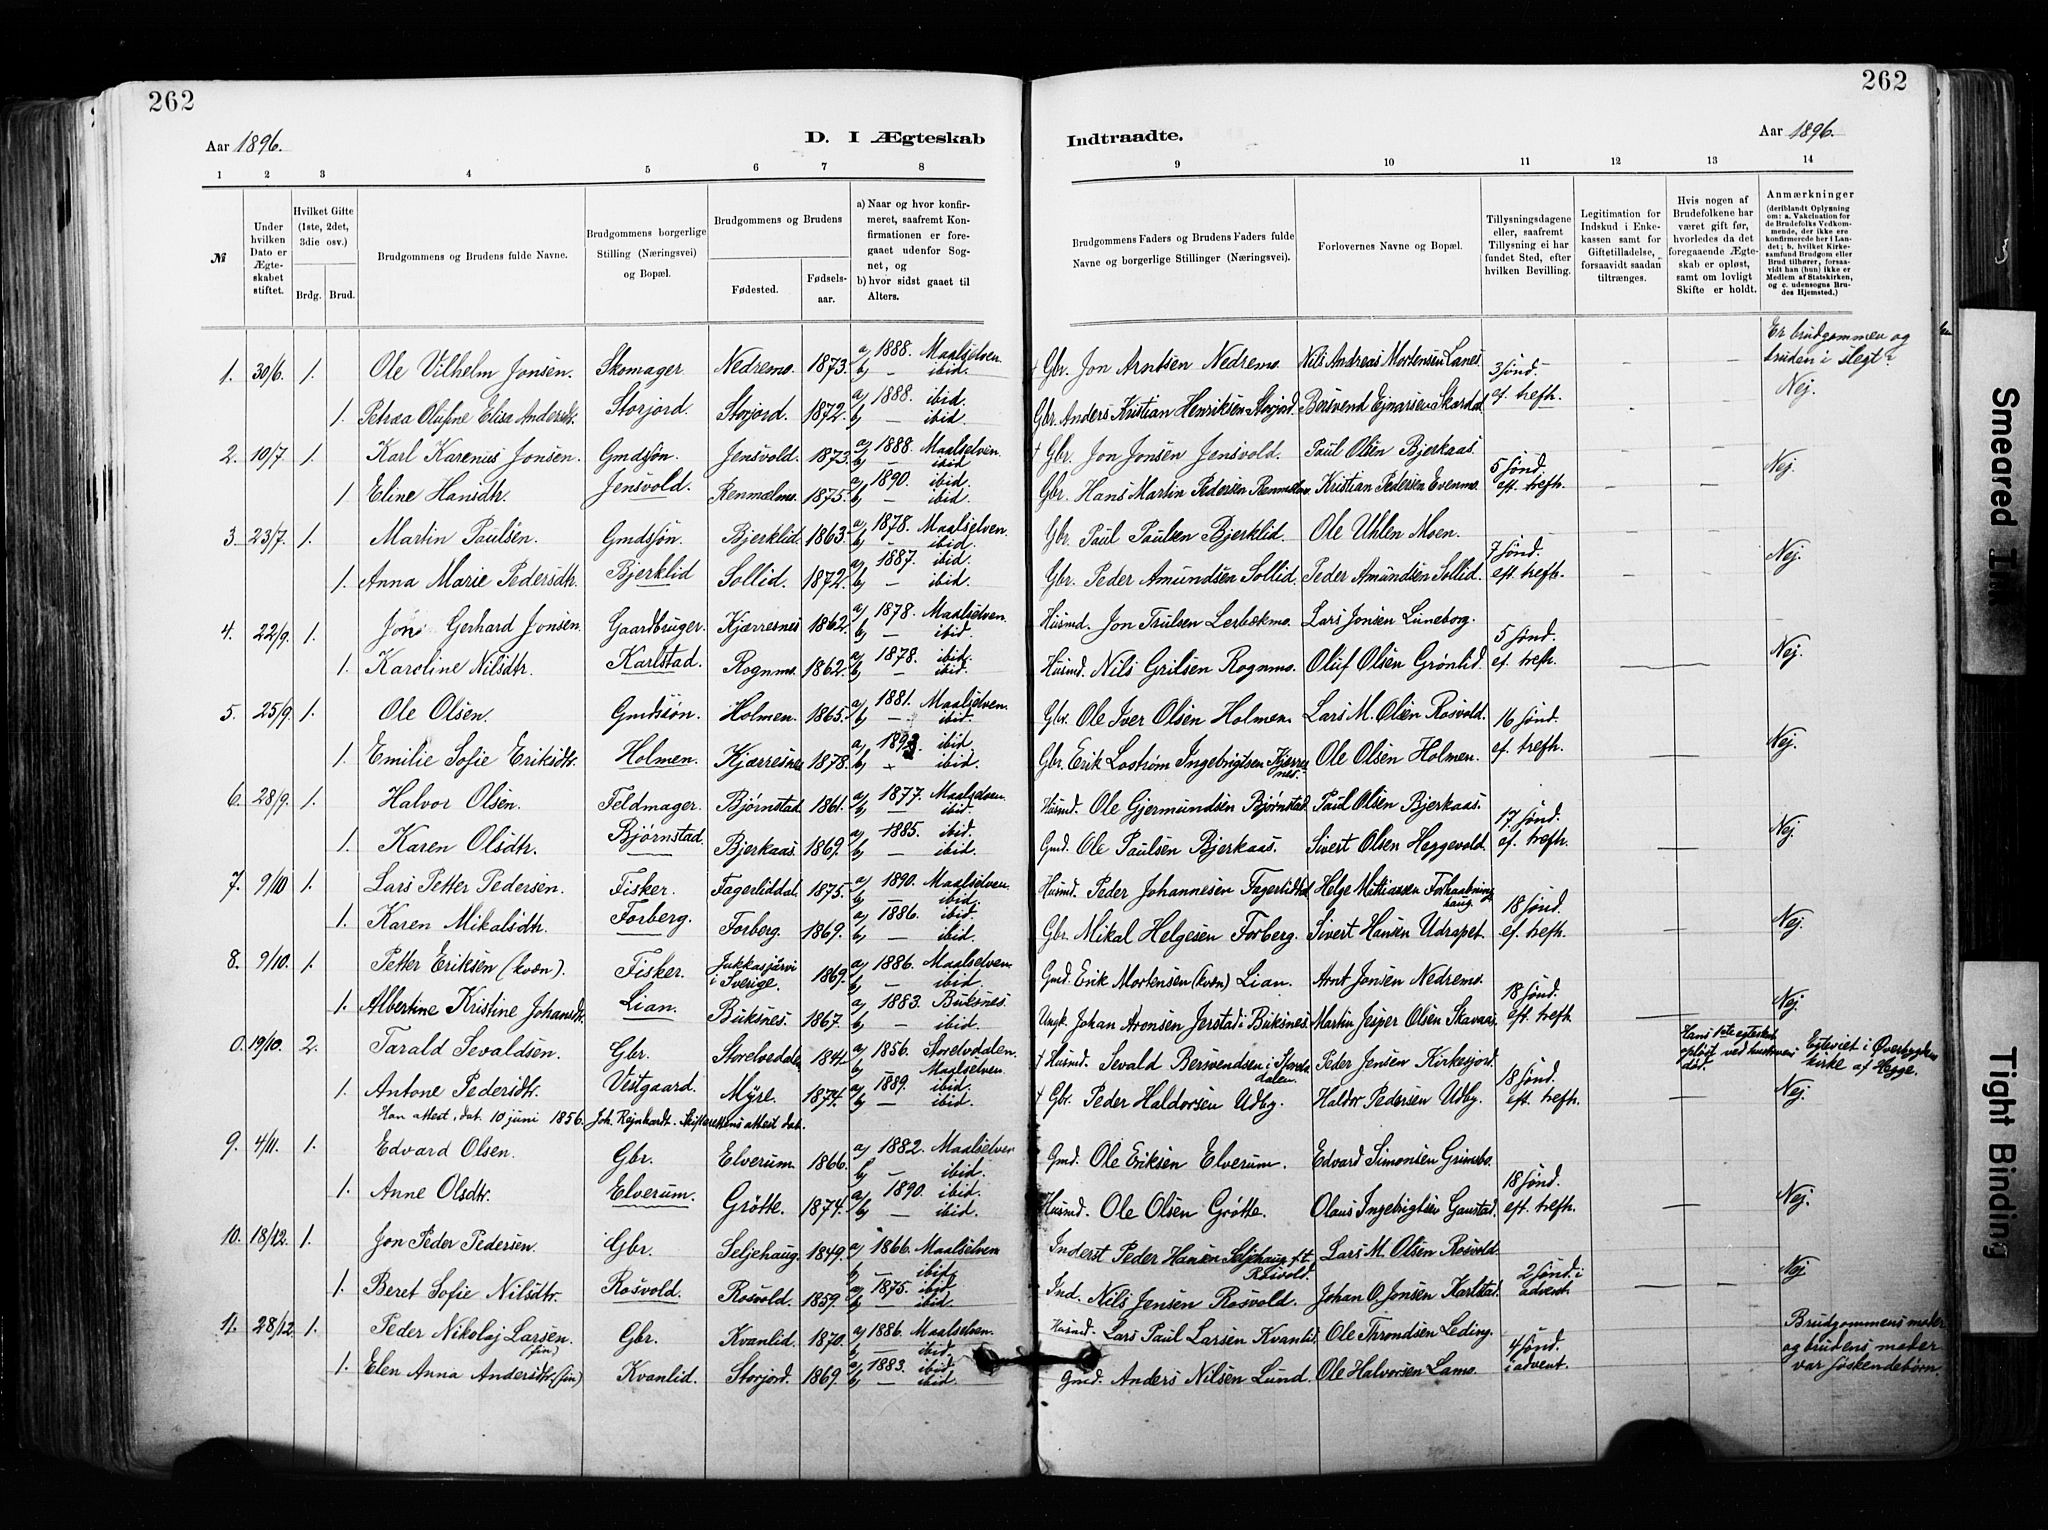 262
262
Aar 1896.
D. I Ægteskab
Indtraadte.
Aar 1896.
1 2 3 4 5 6 7 8 9 10 11 12 13 14
№
Under hvilken Dato er Ægteskabet stiftet.
Hvilket Gifte (1ste, 2det, 3die osv.)
Brdg. Brud.
Brudgommens og Brudens fulde Navne.
Brudgommens borgerlige Stilling (Næringsvei) og Bopæl.
Brudgommens og Brudens
Fødested.
Fødselsaar.
a) Naar og hvor konfirmeret, saafremt Konfirmationen er foregaaet udenfor Sognet, og
b) hvor sidst gaaet til Alters.
Brudgommens Faders og Brudens Faders fulde Navne og borgerlige Stillinger (Næringsvei).
Forlovernes Navne og Bopæl.
Tillysningsdagene eller, saafremt Tillysning ei har fundet Sted, efter hvilken Bevilling.
Legitimation for Indskud i Enkekassen samt for Giftetilladelse, forsaavidt saadan tiltrænges.
Hvis nogen af Brudefolkene har været gift før, hvorledes da det foregaaende Ægteskab er opløst, samt om lovligt Skifte er holdt.
Anmærkninger
(deriblandt Oplysning om: a. Vakcination for de Brudefolks Vedkommende, der ikke ere konfirmerede her i Landet; b. hvilket Kirkesamfund Brudgom eller Brud tilhører, forsaavidt han (hun) ikke er Medlem af Statskirken, og c. udensogns Brudes Hjemsted.)
Er brudgommen og bruden i slegt?
1. 30/6. 1. Ole Vilhelm Jonsen. Skomager Nedremo. 1873. a) 1888. Maalselven b) — ibid. † Gbr. Jon Arntsen Nedremo. Nils Andreas Mortensen Lanes 3 sønd. — — Nej.
1. Petræa Olufine Elisa Andersdtr. Storjord. Storjord. 1872. a) 1888. ibid. b) — ibid. Gbr. Anders Kristian Henriksen Storjord. Bersvend Ejnarsen Skardal ef. trefh. — —
2. 10/7 1. Karl Karenus Jonsen. Gmdsøn. Jensvold. 1873. a) 1888. Maalselven. b) — ibid † Gbr. Jon Jonsen Jensvold. Paul Olsen Bjerkaas. 5 sønd. — — Nej.
1 Eline Hansdtr. Jensvold. Renmælmo. 1875. a) 1890. ibid. b) — ibid. Gbr. Hans Martin Pedersen Renmælmo. Kristian Pedersen Evenmo. ef. trefh. — —
3. 23/7. 1. Martin Paulsen. Gmdsøn. Bjerklid. 1863. a) 1878. Maalselven b) — ibid. Gbr. Paul Paulsen Bjerklid. Ole Uhlen Moen. 7 sønd. — — Nej.
1. Anna Marie Pedersdtr. Bjerklid Sollid. 1872. a) 1887. ibid. b) — ibid. Gbr. Peder Amundsen Sollid. Peder Amundsen Sollid. eft. trefh. — —
4. 22/9. 1. Jon Gerhard Jonsen. Gaardbruger. Kjærresnes 1862. a) 1878. Maalselven. b) — ibid. Husmd. Jon Trulsen Lerbækmo. Lars Jonsen Luneborg. 5 sønd. Nej.
1. Karoline Nilsdtr. Karlstad. Rognmo. 1862. a) 1878. ibid. b) — ibid. Husmd. Nils Grilsen Rognmo. Oluf Olsen Grønlid. ef. trefh. — —
5. 25/9. 1. Ole Olsen. Gmdssøn. Holmen. 1865. a) 1881. Maalselven. b) — ibid. Gbr. Ole Iver Olsen Holmen. Lars M. Olsen Rosvold. 16 sønd. Nej.
1. Emilie Sofie Eriksdtr. Holmen. Kjærresnes 1878. a) 1893. ibid. b) — ibid. Gbr. Erik Lostrøm Ingebrigtsen Kjærresnes. Ole Olsen Holmen. ef. trefh. —
6. 28/9. 1. Halvor Olsen. Feldmager. Bjørnstad. 1861. a) 1877. Maalselven. b) — ibid. Husmd. Ole Gjermundsen Bjørnstad. Paul Olsen Bjerkaas. 17 sønd. Nej.
1. Karen Olsdtr. Bjørnstad. Bjerkaas. 1869. a) 1885. ibid. b) — ibid. Gmd. Ole Paulsen Bjerkaas. Sivert Olsen Heggevold. ef. trefh. —
7. 9/10 1. Lars Petter Pedersen. Fisker. Fagerliddal. 1875. a) 1890. Maalselven. b) — ibid. Husmd. Peder Johannesen Fagerlidtal Helge Mathiassen Forhaabningshaug. 18 sønd. Nej.
1. Karen Mikalsdtr. Forberg. Forberg. 1869. a) 1886. ibid. b) — ibid. Gbr. Mikal Helgesen Forberg. Sivert Hansen Udrapet. ef. trefh. —
8. 9/10. 1. Petter Eriksen (kvæn). Fisker. Jukkasjærvi i Sverige. 1869. a) 1886. Maalselven. b) — ibid. Gmd. Erik Mortensen (kvæn) Lian. Arnt Jonsen Nedremo. 18 sønd. Nej.
1. Albertine Kristine Johansdtr. Lian. Buksnes. 1867. a) 1883. Buksnes. b) — ibid. Ungk. Johan Aronsen Jerstad i Buksnes. Martin Jesper Olsen Skavaas. eft. trefh. —
0. 19/10. 2. Tarald Sevaldsen. Gbr. Storelvedalen 1841. a) 1856. Storelvdalen. b) Maalselven. † Husmd. Sevald Bersvendsen i Storelvdalen. Peder Jensen Kirkesjord. 18 sønd. Hans 1ste egteskab opløst ved hustrues død. Egteviet i Øverbygdens kirke af Hegge.
1. Antone Pedersdtr. Vestgaard. Myre. 1874. a) 1889. ibid. b) — ibid. † Gbr. Peder Haldorsen Udby. Haldor Pedersen Udby. eft. trefh. — Nej.
Han attest. dat. 10 juni 1856. Joh. Rejnhardt. Skifterettens attest dat.
9. 4/11. 1. Edvard Olsen. Gbr. Elverum. 1866. a) 1882. Maalselven b) — ibid. Gmd. Ole Eriksen Elverum. Edvard Simonsen Grimsbo. 18 sønd. Nej.
1. Anne Olsdtr. Elverum. Grøtte. 1874. a) 1890. ibid. b) — ibid. Husmd. Ole Olsen Grøtte. Olaus Ingebrigtsen Gaustad. eft. trefh. — —
10. 18/12. 1. Jon Peder Pedersen. Gbr. Seljehaug. 1849. a) 1866. Maalselven b) — ibid. Inderst Peder Hansen Seljehaug f.t. Rosvold. Lars M. Olsen Rosvold. 2 sønd. i Nej
1. Beret Sofie Nilsdtr. Rosvold. Rosvold. 1859. a) 1875. ibid b) — ibid. Ind. Nils Jensen Rosvold. Johan O. Jonsen Karlstad. advent. — —
11. 28/12 1. Peder Nikolaj Larsen. (fin) Gbr. Kvanlid. 1870. a) 1886. Maalselven. b) — ibid. Husmd. Lars Paul Larsen Kvanlid. Ole Throndsen Leding. 4 sønd. Brudgommens moder
1. Elen Anna Andersdtr. (fin) Kvanlid. Storjord. 1869. a) 1883. ibid. b) — ibid. Gmd. Anders Nilsen Lund. Ole Halvorsen Lamo. i advent. og brudens moder var søskendebørn.
Smeared Ink
Tight Binding